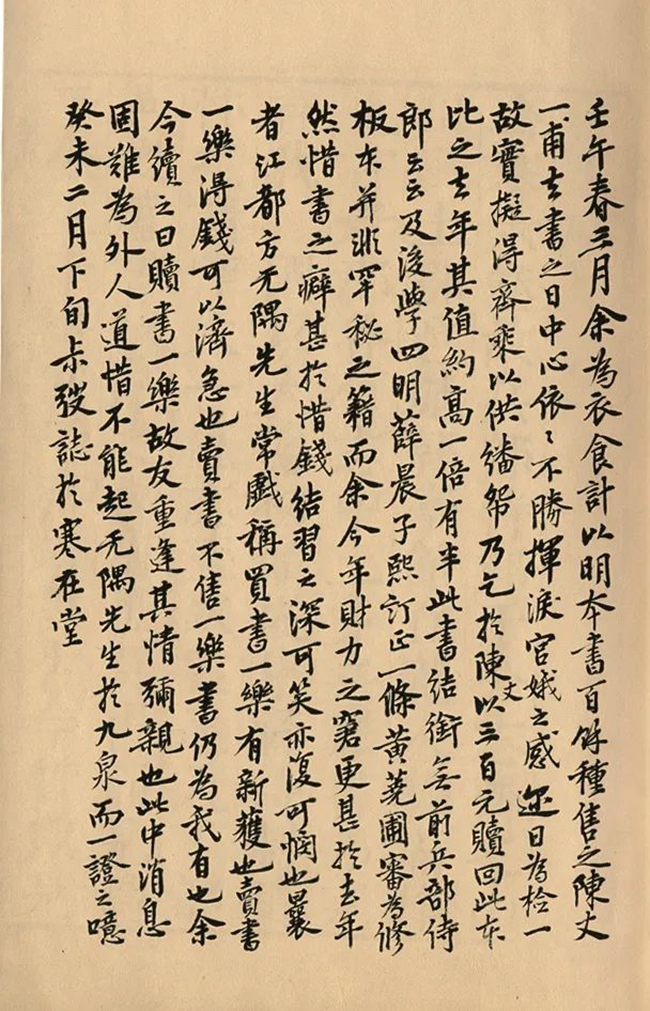 壬午春三月余為衣食計以明本書百餘種售之陳丈
一甫去書之日中心依〻不勝揮淚宮娥之感邇日為檢一
故實擬得齊乘以供繙帋乃乞於陳丈以三百元贖回此本
比之去年其值約高一倍有半此書結銜無前兵部侍
郎云云及後學四明薛晨子熙訂正一條黃蕘圃審為修
板本并非罕秘之籍而余今年財力之窘更甚於去年
然惜書之癖甚於惜錢結習之深可笑亦復可憫也曩
者江都方无隅先生常戲稱買書一樂有新獲也賣書
一樂得錢可以濟急也賣書不售一樂書仍為我有也余
今續之曰贖書一樂故友重逢其情彌親也此中消息
固難為外人道惜不能起无隅先生於九泉而一證之噫
癸未二月下旬尗弢誌於寒在堂